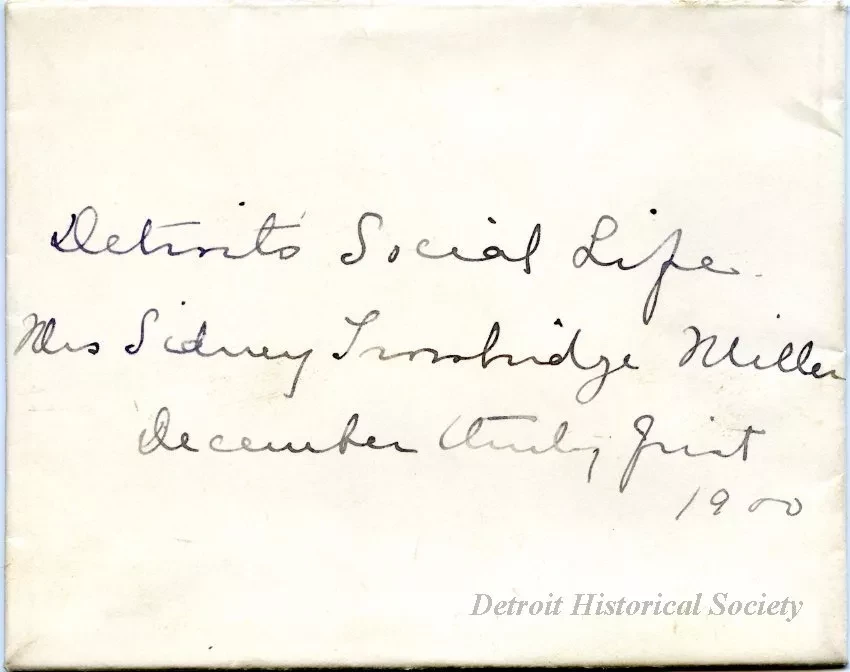 Detroit's Social Life.
Mrs Sidney Trowbridge Miller
December thirty first
1900
Detroit Historical Society